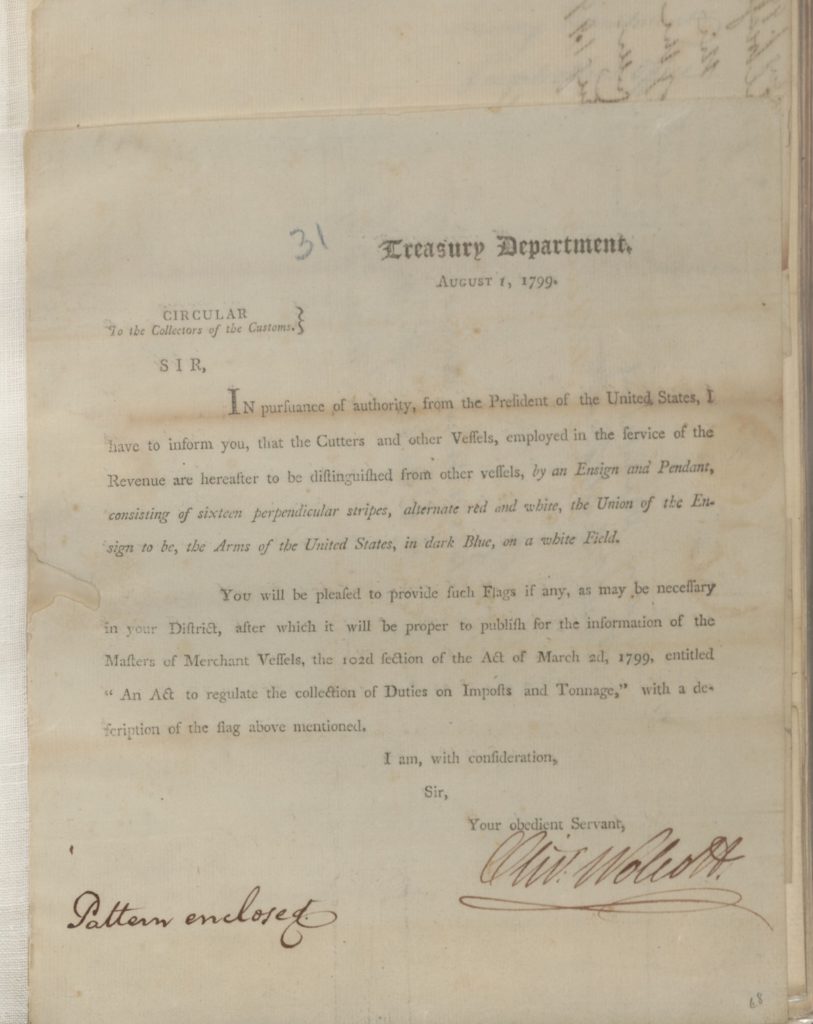 31
Treasury Department.
AUGUST 1, 1799.
CIRCULAR
To the Collectors of the Customs.}
SIR,
IN purſuance of authority, from the Preſident of the United States, I
have to inform you, that the Cutters and other Veſſels, employed in the ſervice of the
Revenue are hereafter to be diſtinguiſhed from other veſſels, by an Ensign and Pendant,
consisting of sixteen perpendicular stripes, alternate red and white, the Union of the En-
sign to be, the Arms of the United States, in dark Blue, on a white Field.
YOU will be pleaſed to provide ſuch Flags if any, as may be neceſſary
in your Diſtrict, after which it will be proper to publiſh for the information of the
Maſters of Merchant Veſſels, the 102d ſection of the Act of March 2d, 1799, entitled
“ An Act to regulate the collection of Duties on Impoſts and Tonnage,” with a de-
ſcription of the flag above mentioned.
I am, with conſideration,
Sir,
Your obedient Servant,
Oliv. Wolcott.
Pattern enclosed.
68